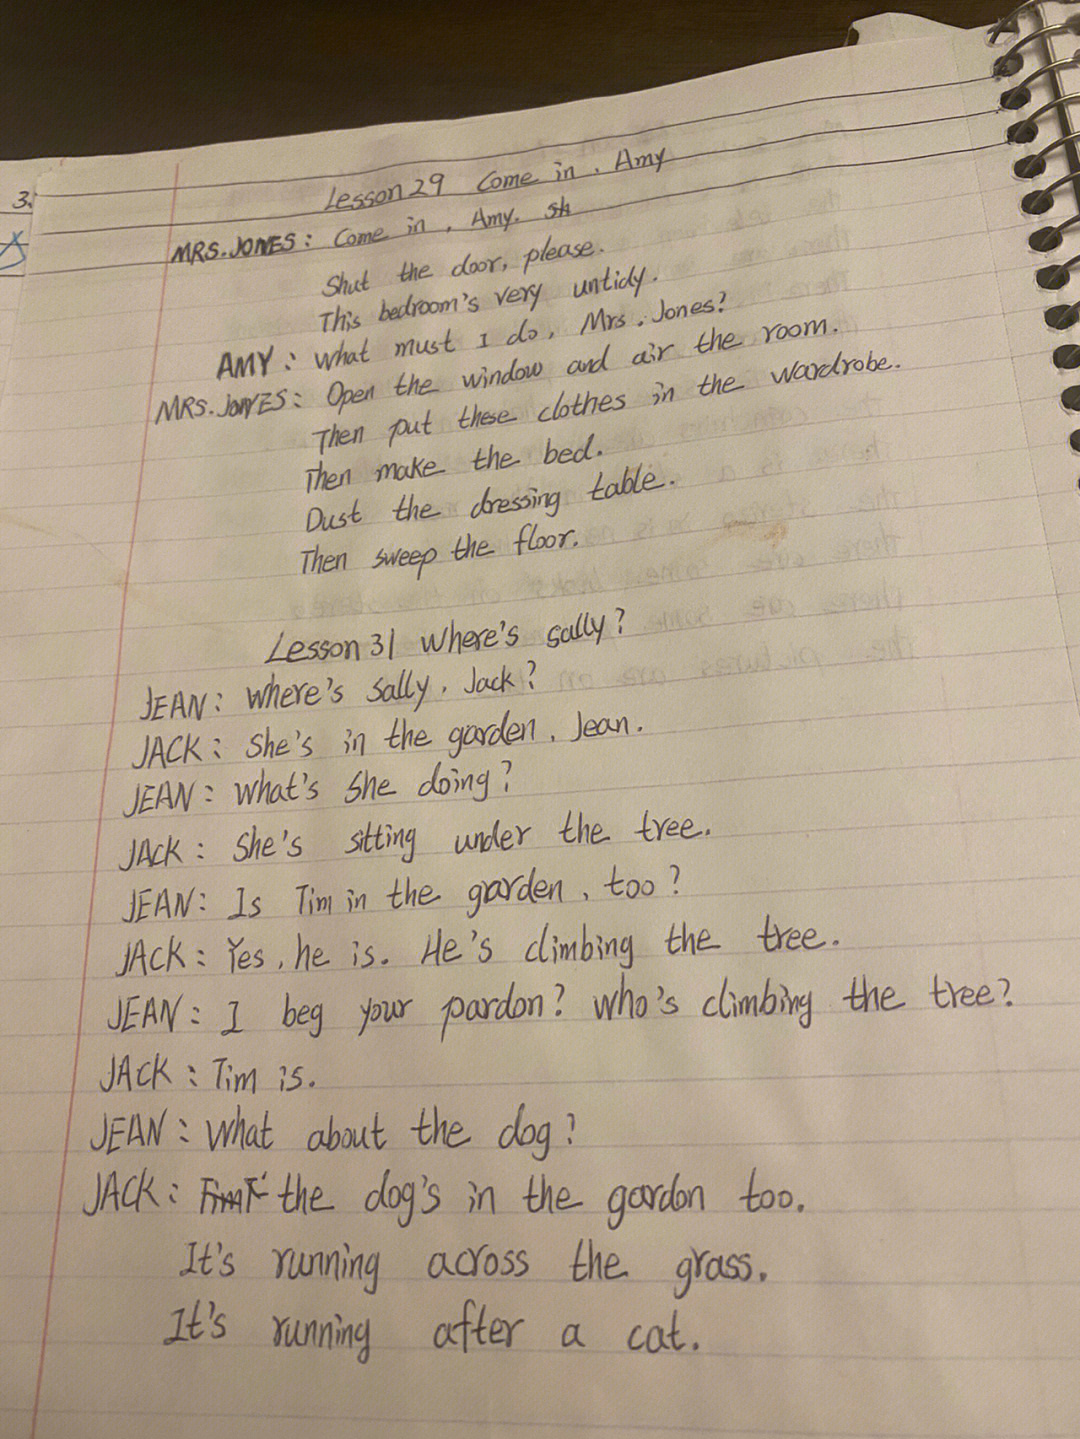 3.
Lesson 29 Come in, Amy
MRS. JONES: Come in, Amy. sh
Shut the door, please.
This bedroom's very untidy.
AMY: what must I do, Mrs. Jones?
MRS. JONES: Open the window and air the room.
Then put these clothes in the wardrobe.
Then make the bed.
Dust the dressing table.
Then sweep the floor.
Lesson 31 Where's sally?
JEAN: where's Sally, Jack?
JACK: She's in the garden, Jean.
JEAN: what's she doing?
JACK: She's sitting under the tree.
JEAN: Is Tim in the garden, too?
JACK: Yes, he is. He's climbing the tree.
JEAN: I beg your pardon? who's climbing the tree?
JACK: Tim is.
JEAN: what about the dog?
JACK: the dog's in the gardon too.
It's running across the grass.
It's running after a cat.